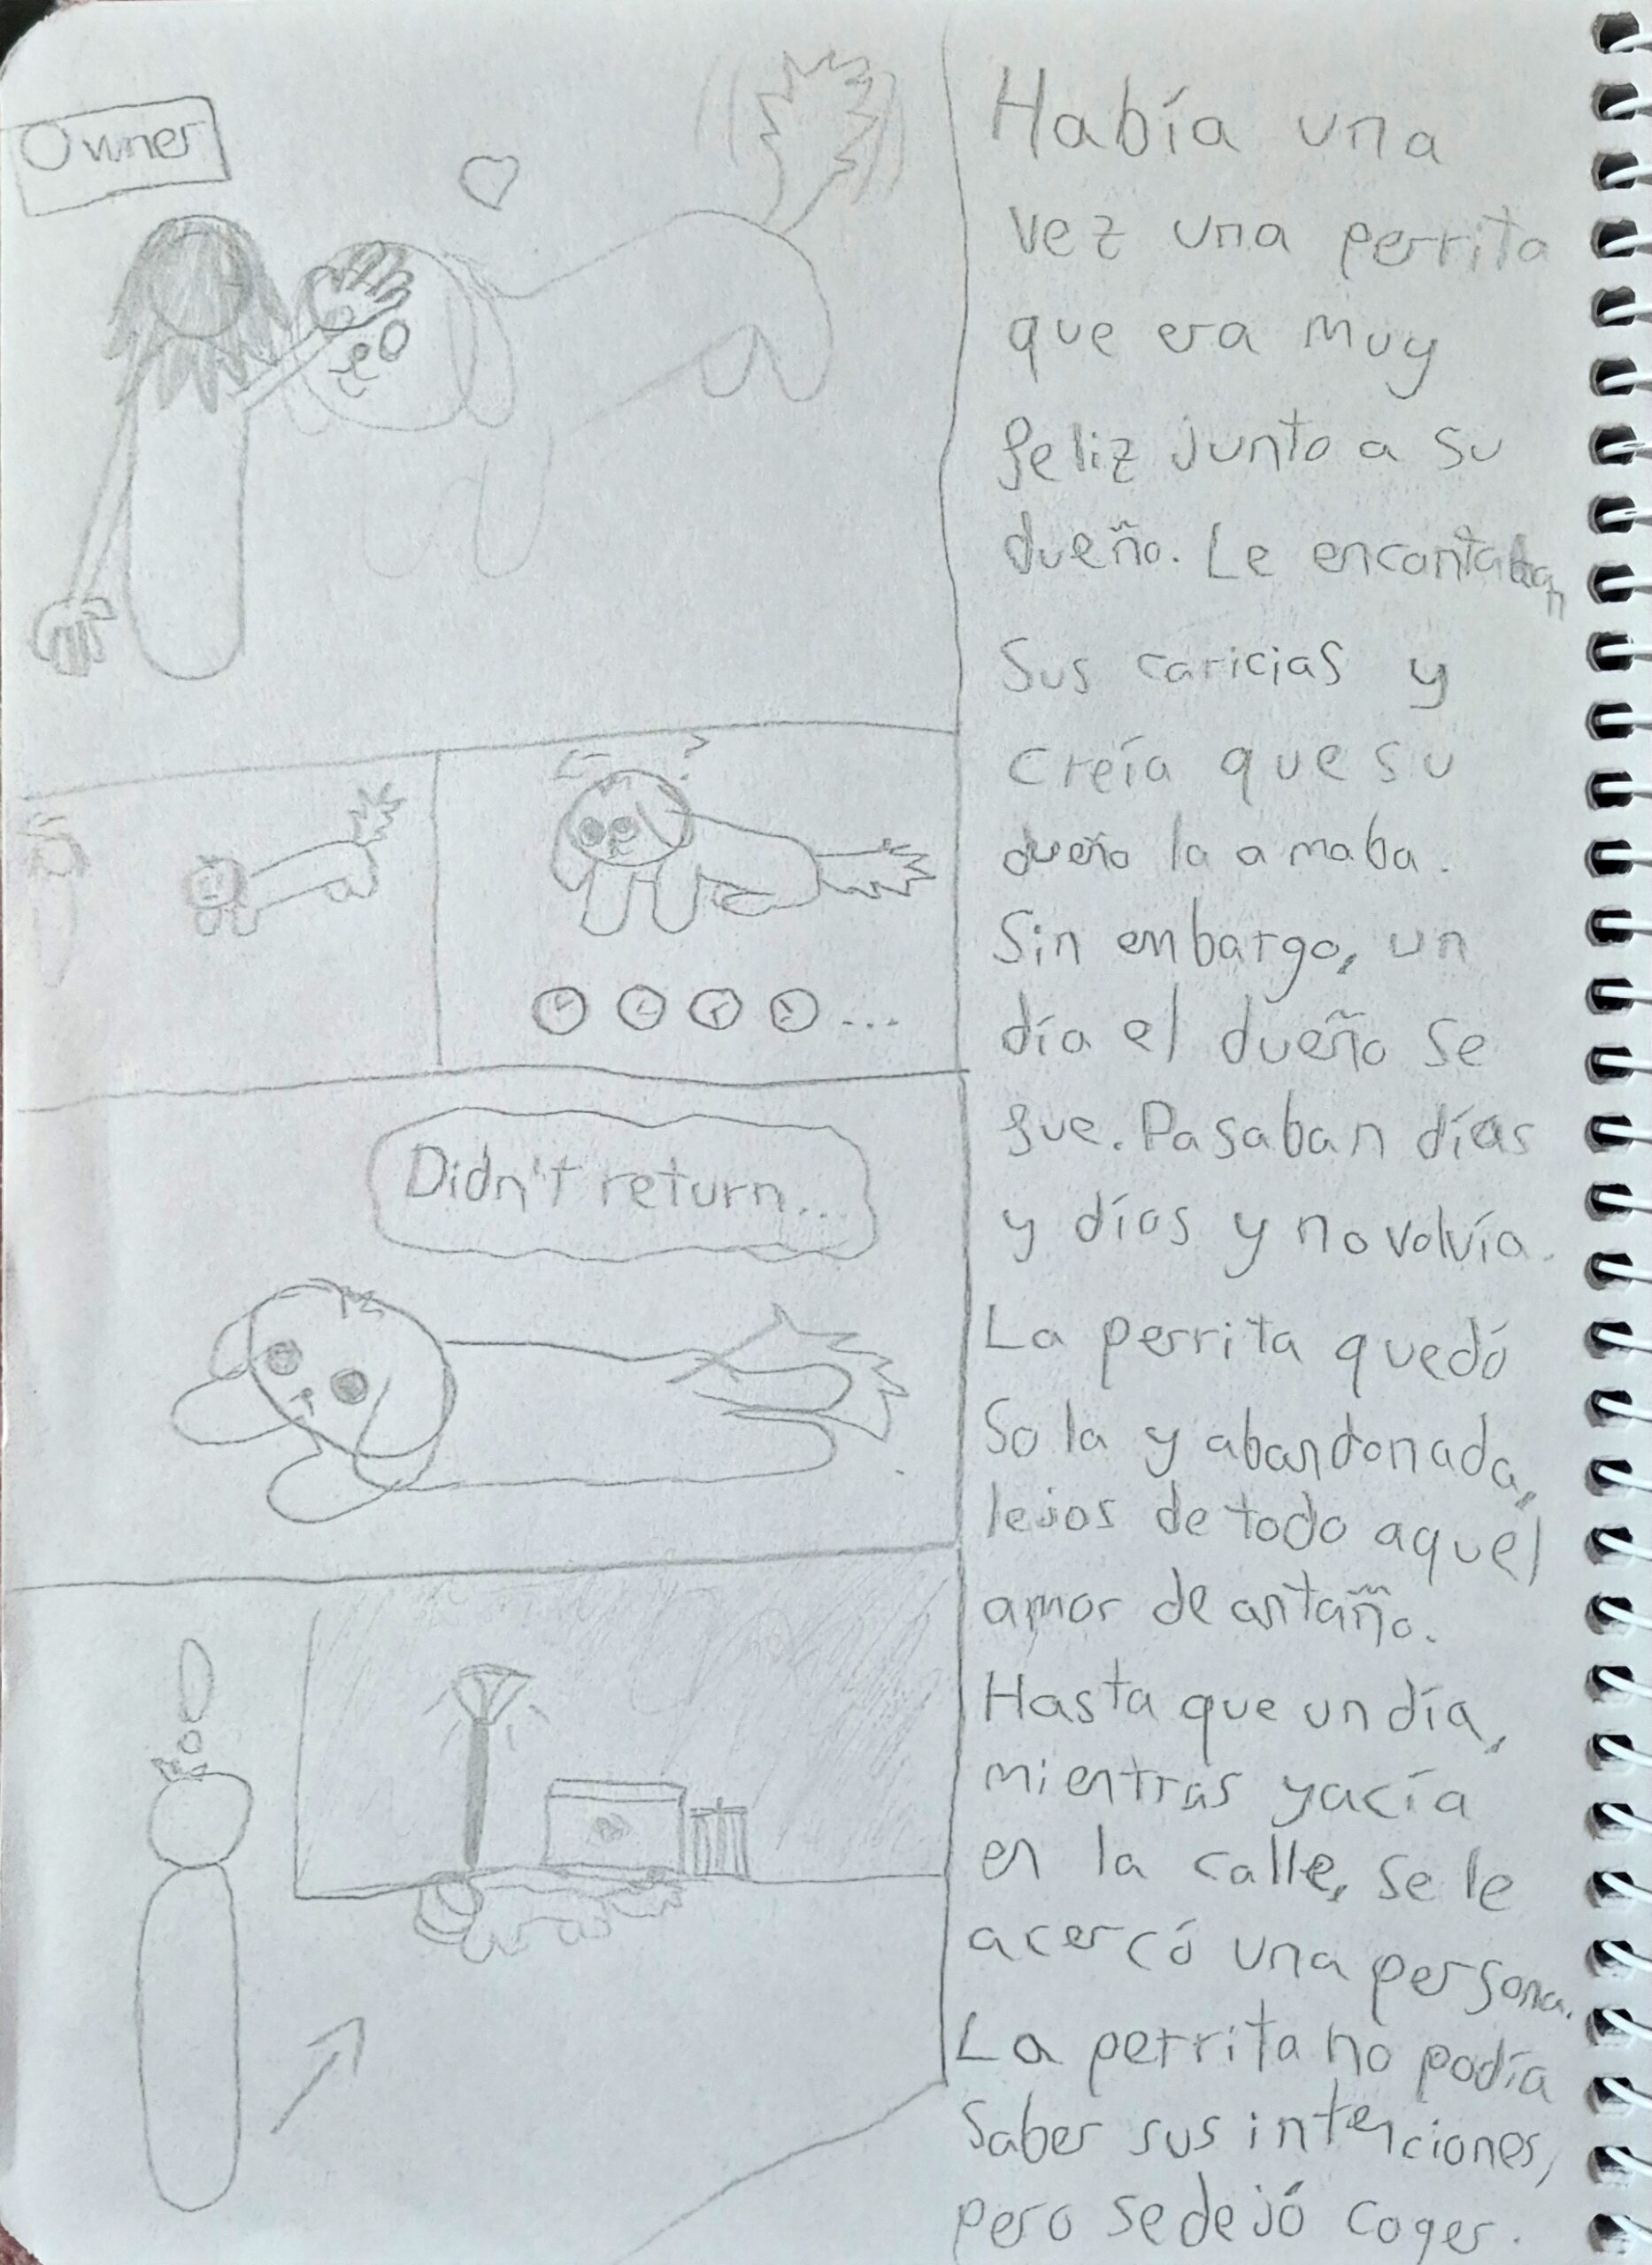 Owner
Didn't return...
Había una
vez una perrita
que era muy
feliz junto a su
dueño. Le encantaban
sus caricias y
creía que su
dueño la amaba.
Sin embargo, un
día el dueño se
fue. Pasaban días
y días y no volvía.
La perrita quedó
sola y abandonada,
lejos de todo aquel
amor de antaño.
Hasta que un día,
mientras yacía
en la calle, se le
acercó una persona.
La perrita no podía
saber sus intenciones,
pero se dejó coger.